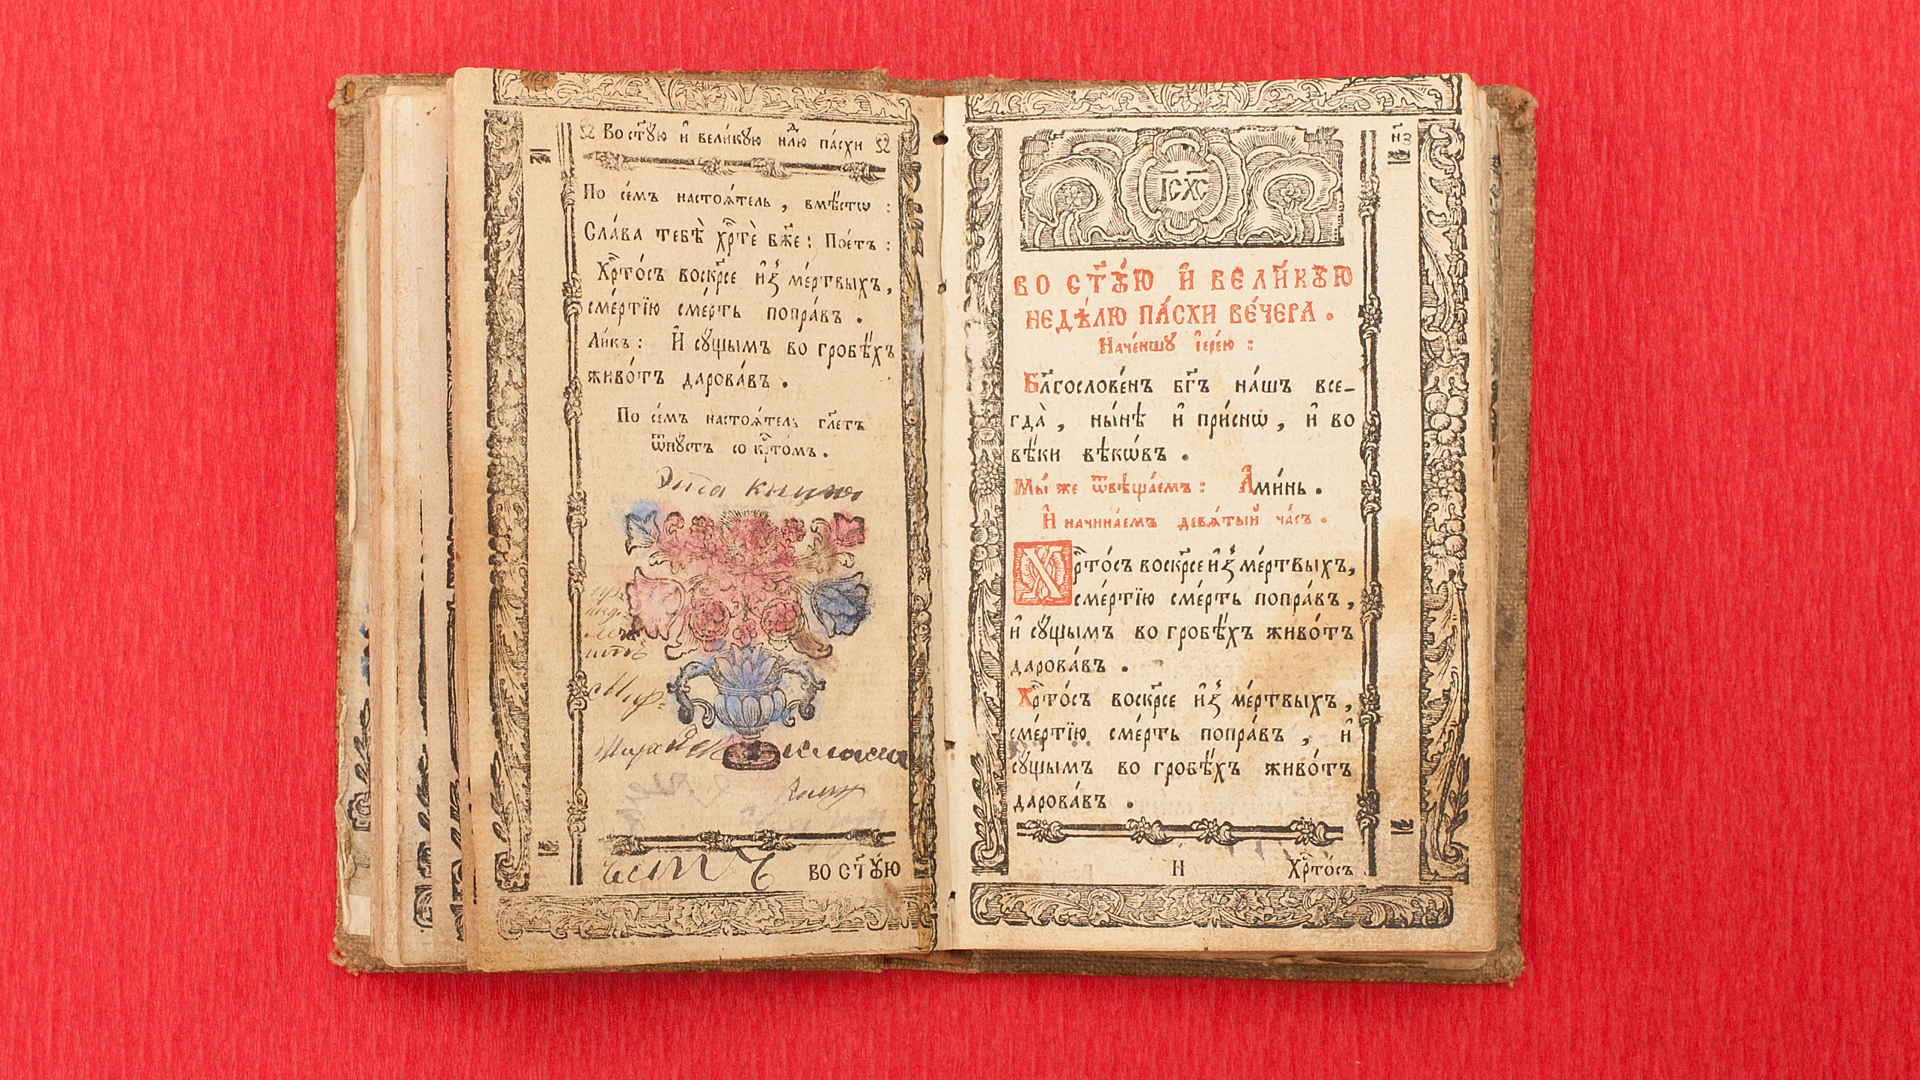 Во ст҃ꙋю и҆ вели́кꙋю нд҃лю па́схи
По се́мъ настоѧ́тель , вмѣ́стѡ :
Сла́ва тебѣ̀ хрⷭ҇тѐ бж҃е : Пое́тъ :
Хрⷭ҇то́съ воскр҃се и҆з̾ ме́ртвыхъ ,
сме́ртїю сме́рть попра́въ .
Ли́къ : И҆ сꙋ́щымъ во гробѣ́хъ
живо́тъ дарова́въ .
По се́мъ настоѧ́тель гл҃етъ
ѿпꙋстъ со крⷭ҇то́мъ .
Эта книга
есть
во ст҃ꙋ́ю
н҃з
І҃С Х҃С
ВО СТ҃ꙊЮ И҆ ВЕЛИ́КꙊЮ
НЕДѢ́ЛЮ ПА́СХИ ВЕ́ЧЕРА .
Наче́ншꙋ і҆ере́ю :
Бл҃гослове́нъ бг҃ъ на́шъ все-
гда̀ , ны́нѣ и҆ при́снѡ , и҆ во
вѣ́ки вѣкѡ́въ .
Мы́ же ѿвѣща́емъ : А҆ми́нь .
И҆ начина́емъ девѧ́тый ча́съ .
Хрⷭ҇то́съ воскр҃се и҆з̾ ме́ртвыхъ ,
сме́ртїю сме́рть попра́въ ,
и҆ сꙋ́щымъ во гробѣ́хъ живо́тъ
дарова́въ .
Хрⷭ҇то́съ воскр҃се и҆з̾ ме́ртвыхъ ,
сме́ртїю сме́рть попра́въ , и҆
сꙋ́щымъ во гробѣ́хъ живо́тъ
дарова́въ .
н
Хрⷭ҇то́съ